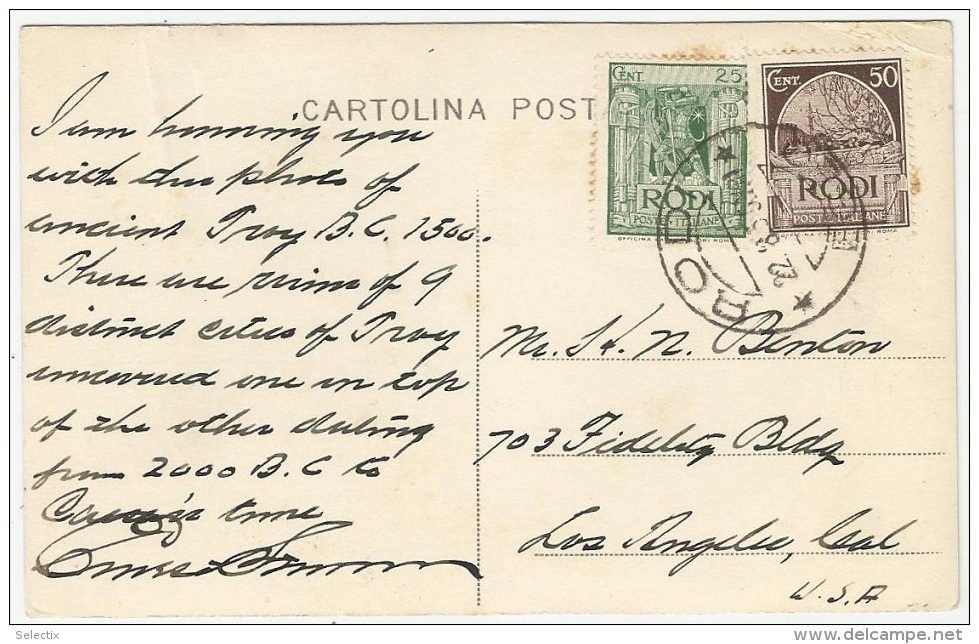 CARTOLINA POST
CENT. 25
RODI
POSTE ITALIANE
CENT. 50
RODI
POSTE ITALIANE
RODI
I am
you
with this photo of
ancient Troy B.C. 1500.
There are ruins of 9
distinct cities of Troy
uncovered one on top
of the other dating
from 2000 B.C to
time
Mr. H. N. Benton
703 Fidelity Bldg
Los Angeles, Cal
U.S.A
© Selectix
www.delcampe.net